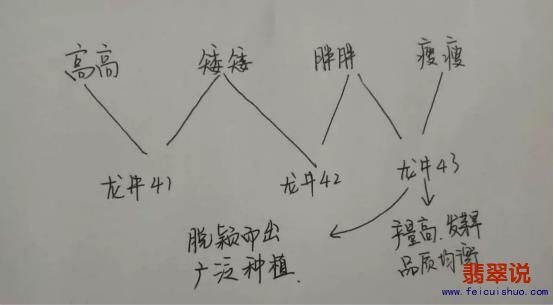 高高 矮矮 胖胖 瘦瘦
龙井41 龙井42 龙井43
脱颖而出
广泛种植.
产量高.发芽早
品质均衡
翡翠说
www.feicuishuo.com